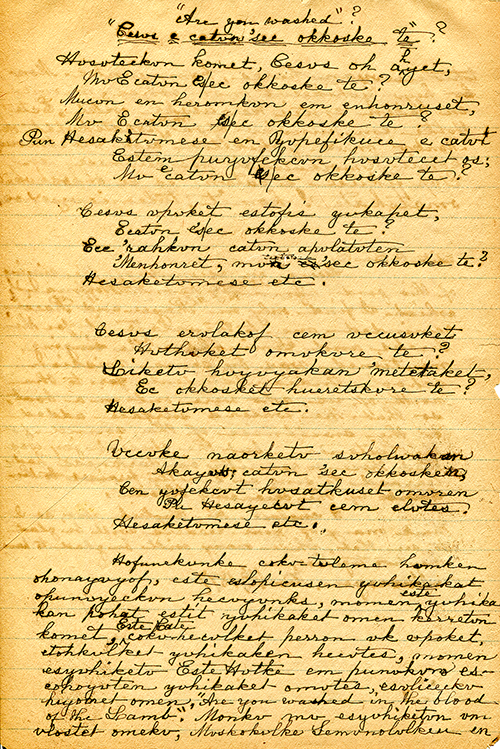 "Are you washed"?
"Cesvs e catvn 'sec okkoske te"?
Hvsvteckvn komet, Cesvs oh hyet,
Mv Ecatvn 'sec okkoske te?
Mucvn en heromkvn em enhonruset,
Mv Ecatvn 'sec okkoske te?
Pun Hesaketvmese en Yvpefikuce e catvt
Estem puyvfekcvn hvsvtecet os;
Mv Ecatvn 'sec okkoske te?
Cesvs vpvket estofis yvkapet,
Ecatvn 'sec okkoske te?
Ece 'rahkvn catvn apvlatvten
'Menhonret, mvn 'sec okkoske te?
Hesaketvmese etc.
Cesvs ervlakof cem vccusvket
Hvthvket omvkvre te?
Liketv hvyvyakan 'metetaket,
Ec okkosket hueretskvre te?
Hesaketvmese etc.
Vccvke naorketv svholwakan
Akayvs, catvn 'sec okkosken,
Cen yvfekcvt hvsatkuset omvren
Hesayecvt cem elvtes.
Hesaketvmese etc.
Hofunekvnke cokv-tvleme hvmken
ohonayvyof, este eslopicusen yvhikakat
opunvyeckvn hecvyvnks, momen este yvhika
kan pohat estit yvhikaket omen kerretvn
komet, Este Cate cokv-hecvlket perron vk vpoket,
etohkvlket yvhikaken hecvtes, momen
esyvhiketv Este Hvtke em punvkvn es-
cohoyvten yvhikaket omvtes, esvliceckv
hiyomet omen, "Are you washed in the blood
of the Lamb". Monkv mv esyvhiketvn vm
vlostet omekv, Mvskokvlke Semvnolvlken en